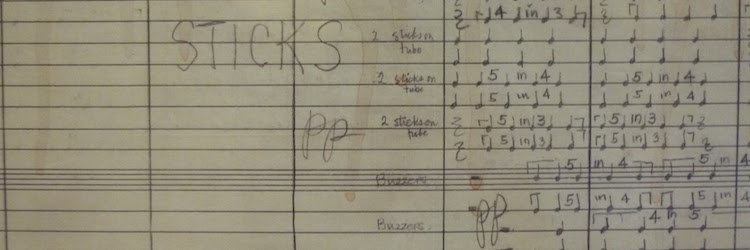 4 in 3
STICKS
2 sticks on
tube
2 sticks on
tube
5 in 4 5 in 4
5 in 4 5 in 4
pp
2 sticks on
tube
5 in 3 5 in 3
5 in 3 5 in 3
Buzzers
5 in 4 5 in 4
pp
5 in 4 5 in 4
Buzzers
4 in 5